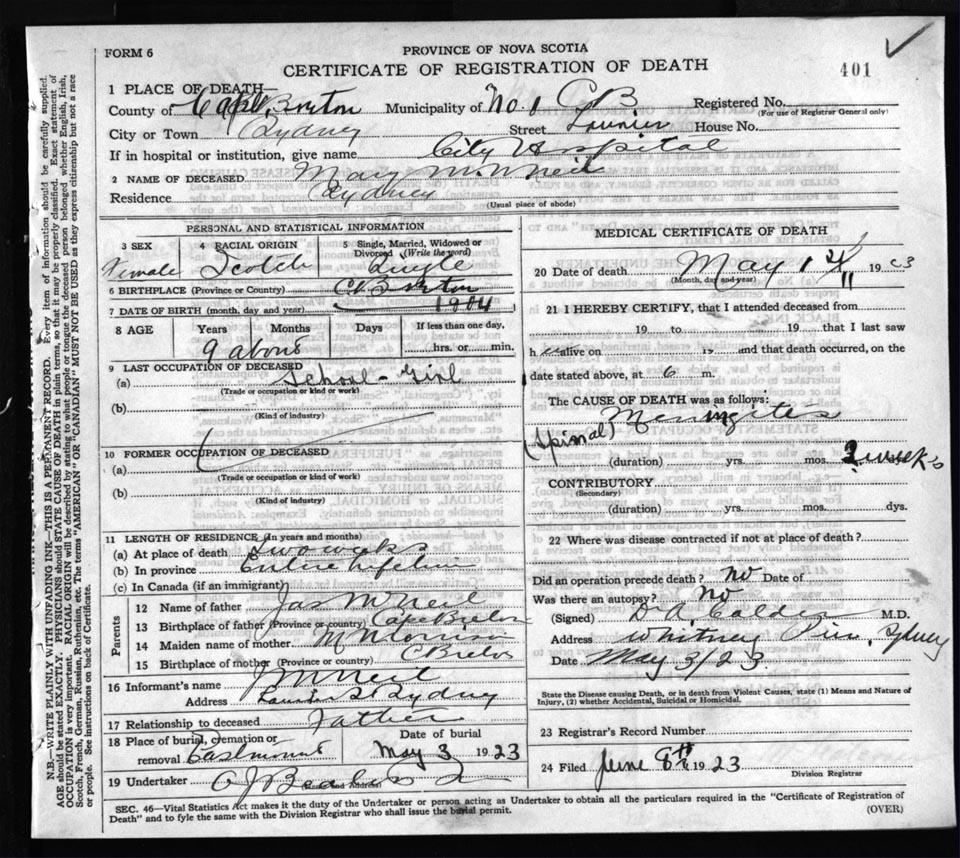 FORM 6
PROVINCE OF NOVA SCOTIA
CERTIFICATE OF REGISTRATION OF DEATH
401
1 PLACE OF DEATH—
County of Cape Breton Municipality of No. 1 C B Registered No.
(For use of Registrar General only)
City or Town Sydney Street House No.
If in hospital or institution, give name City Hospital
2 NAME OF DECEASED Mary McNeil
Residence Sydney
(Usual place of abode)
PERSONAL AND STATISTICAL INFORMATION
3 SEX 4 RACIAL ORIGIN 5 Single, Married, Widowed or Divorced (Write the word)
Female Scotch Single
6 BIRTHPLACE (Province or Country) C Breton
7 DATE OF BIRTH (month, day and year)
8 AGE Years Months Days If less than one day,
9 about hrs. or min.
9 LAST OCCUPATION OF DECEASED
(a) School-Girl
(Trade or occupation or kind or work)
(b)
(Kind of industry)
10 FORMER OCCUPATION OF DECEASED
(a)
(Trade or occupation or kind of work)
(b)
(Kind of industry)
11 LENGTH OF RESIDENCE (In years and months)
(a) At place of death Two weeks
(b) In province Entire lifetime
(c) In Canada (if an immigrant)
Parents
12 Name of father Jas McNeil
13 Birthplace of father (Province or country) Cape Breton
14 Maiden name of mother
15 Birthplace of mother (Province or country) C Breton
16 Informant's name J McNeil
Address St Sydney
17 Relationship to deceased Father
18 Place of burial, cremation or Date of burial
removal Eastmount May 3 1923
19 Undertaker
MEDICAL CERTIFICATE OF DEATH
20 Date of death May 1 1923
(Month, day and year)
21 I HEREBY CERTIFY, that I attended deceased from
19 to 19 that I last saw
h er alive on 19 and that death occurred, on the
date stated above, at 6 m.
The CAUSE OF DEATH was as follows:
Meningites
(Spinal)
(duration) yrs. mos. 2 weeks
CONTRIBUTORY
(Secondary)
(duration) yrs. mos. dys.
22 Where was disease contracted if not at place of death?
Did an operation precede death? No Date of
Was there an autopsy? No
(Signed) M.D.
Address Whitney Pier, Sydney
Date May 3/23
State the Disease causing Death, or in death from Violent Causes, state (1) Means and Nature of
Injury, (2) whether Accidental, Suicidal or Homicidal.
23 Registrar's Record Number
24 Filed June 8th 1923
Division Registrar
SEC. 46—Vital Statistics Act makes it the duty of the Undertaker or person acting as Undertaker to obtain all the particulars required in the "Certificate of Registration of
Death" and to fyle the same with the Division Registrar who shall issue the burial permit.
(OVER)
N.B.—WRITE PLAINLY WITH UNFADING INK—THIS IS A PERMANENT RECORD. Every item of information should be carefully supplied.
AGE should be stated EXACTLY. PHYSICIANS should STATE CAUSE OF DEATH in plain terms, so that it may be properly classified. Exact statement of
OCCUPATION is very important. RACIAL ORIGIN will be described by stating to what people or tongue the deceased person belonged, whether English, Irish,
Scotch, French, German, Russian, Ruthenian, etc. The terms "AMERICAN" OR "CANADIAN" MUST NOT BE USED as they express citizenship but not a race
or people. See instructions on back of Certificate.